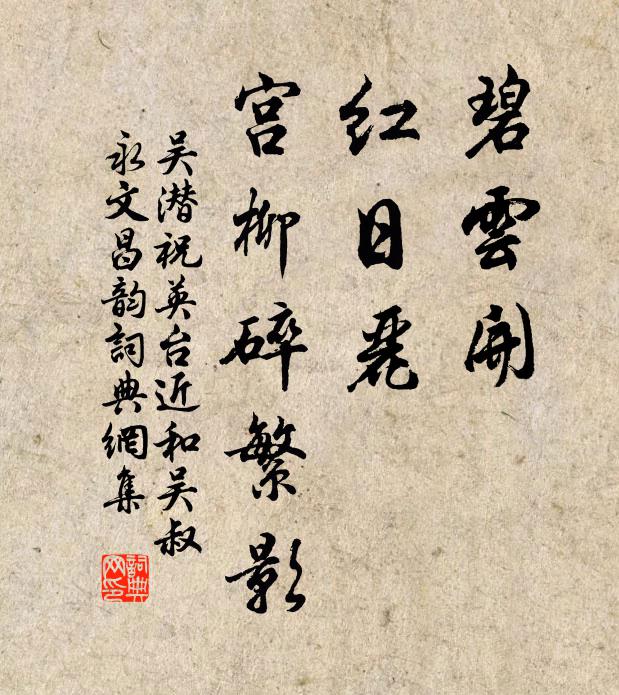 碧雲開
红日麗
宫柳碎繁影
吴潜祝英台近和吴叔
永文昌韵詞典網集
詞典网印